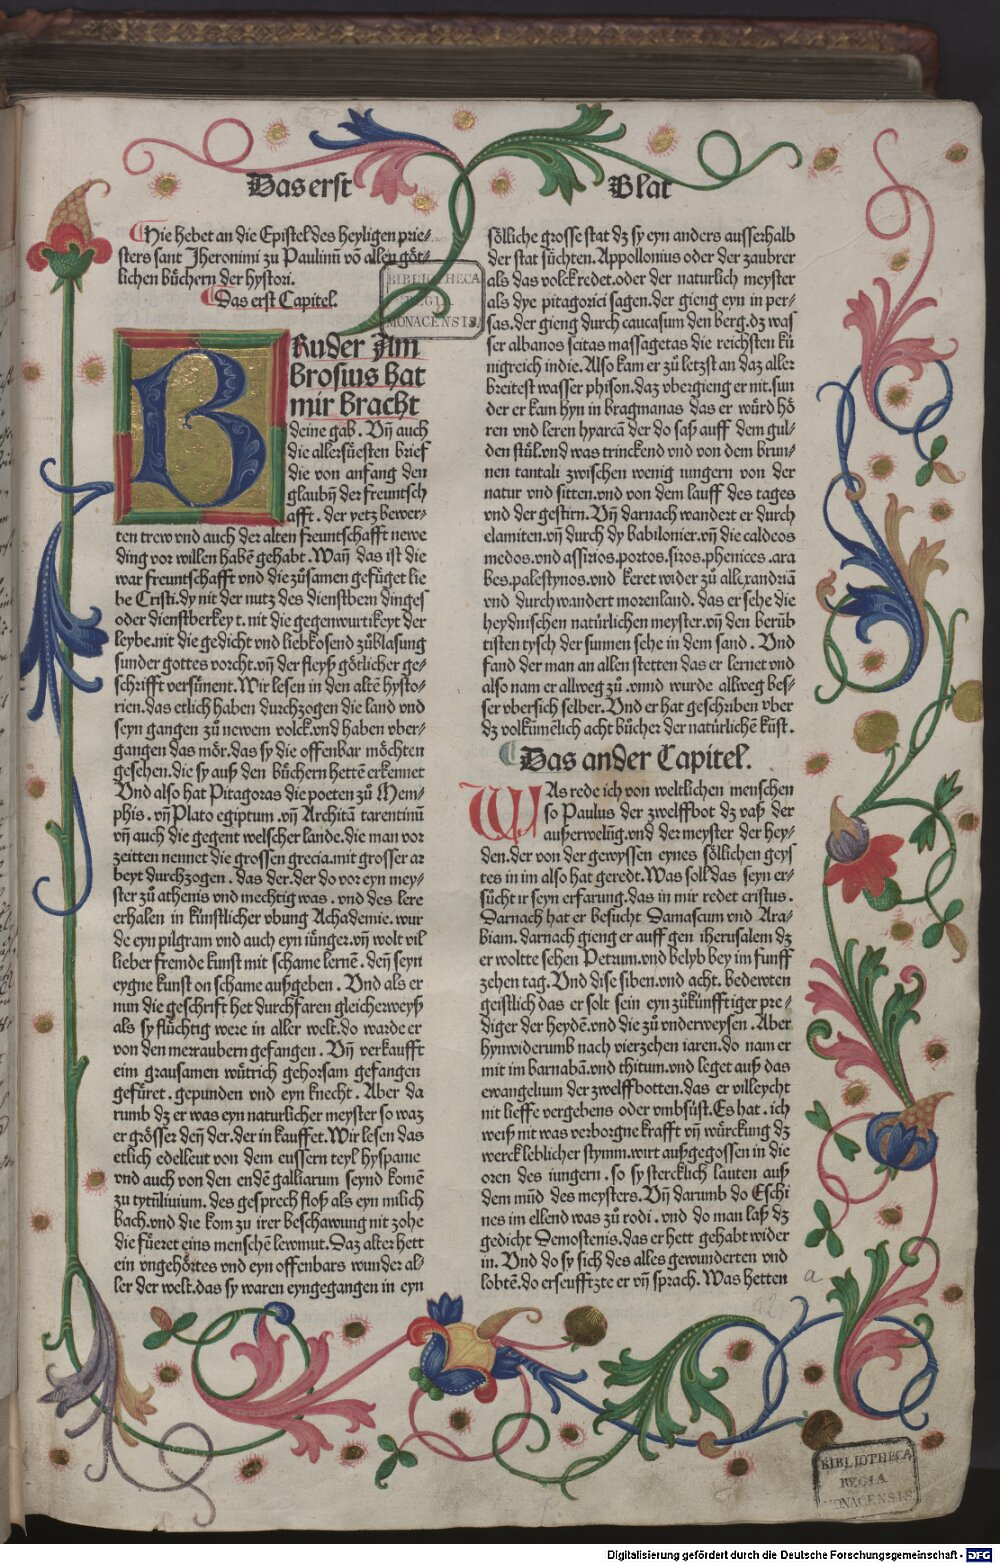 Das erst Blat
Hie hebet an die Epistel des heyligen prie-
sters sant Jheronimi zu Paulinū vō allen göt-
lichen bu̇chern der hystori.
Das erst Capitel.
BRuder Am
brosius hat
mir bracht
deine gab. Vn̄ auch
die allersu̇esten brief
die von anfang den
glaubn̄ der freuntsch
afft. der yetz bewer-
ten trew vnd auch der alten freuntschafft newe
ding vor willen habē gehabt. Wan̄ das ist die
war freuntschafft vnd die zůsamen gefu̇get lie
be Cristi. dy nit der nutz des dienstbern dinges
oder dienstberkeyt. nit die gegenwurtikeyt der
leybe. nit die gedicht vnd liebkosend zůblasung
sunder gottes vorcht. vn̄ der fleyß götlicher ge-
schrifft versu̇nent. Wir lesen in den altē hysto-
rien. das etlich haben durchzogen die land vnd
seyn gangen zů newem volck. vnd haben vber-
gangen das mör. das sy die offenbar möchten
gesehen. die sy auß den bu̇chern hettē erkennet
Vnd also hat Pitagoras die poeten zů Mem-
phis. vn̄ Plato egiptum. vn̄ Architā tarentinū
vn̄ auch die gegent welscher lande. die man vor
zeitten nennet die grossen grecia. mit grosser ar
beyt durchzogen. das der. der do vor eyn mey-
ster zů athenis vnd mechtig was. vnd des lere
erhalen in ku̇nstlicher vbung Achademie. wur
de eyn pilgram vnd auch eyn iu̇nger. vn̄ wolt vil
lieber fremde kunst mit schame lernē. den̄ seyn
eygne kunst on schame außgeben. Vnd als er
nun die geschrift het durchfaren gleicherweyß
als sy flu̇chtig were in aller welt. do warde er
von den merraubern gefangen. Vn̄ verkaufft
eim grausamen wu̇trich gehorsam gefangen
gefu̇ret. gepunden vnd eyn knecht. Aber da
rumb dz er was eyn naturlicher meyster so waz
er grösser den̄ der. der in kauffet. Wir lesen das
etlich edelleut von dem eussern teyl hyspanie
vnd auch von den endē galliarum seynd komē
zu tytūliuium. des gesprech floß als eyn milich
bach. vnd die kom zu irer beschawung nit zohe
die fu̇eret eins menschē lewmut. Daz alter hett
ein vngehörtes vnd eyn offenbars wunder al-
ler der welt. das sy waren eyngegangen in eyn
sölliche grosse stat dz sy eyn anders ausserhalb
der stat su̇chten. Appollonius oder der zaubrer
als das volck redet. oder der naturlich meyster
als dye pitagorici sagen. der gieng eyn in per-
sas. der gieng durch caucasum den berg. dz was
ser albanos scitas massagetas die reichsten ku̇
nigreich indie. Also kam er zů letzst an daz aller
breitest wasser phison. daz vbergieng er nit. sun
der er kam hyn in bragmanas das er wu̇rd hö
ren vnd leren hyarcā der do saß auff dem gul-
den stůl. vnd was trinckend vnd von dem brun-
nen tantali zwischen wenig iungern von der
natur vnd sitten. vnd von dem lauff des tages
vnd der gestirn. Vn̄ darnach wandert er durch
elamiten. vn̄ durch dy babilonier. vn̄ die caldeos
medos. vnd assirios. portos. siros. phenices. ara
bes. palestynos. vnd keret wider zů allexandriā
vnd durchwandert morenland. das er sehe die
heydnischen natu̇rlichen meyster. vn̄ den beru̇b
tisten tysch der sunnen sehe in dem sand. Vnd
fand der man an allen stetten das er lernet vnd
also nam er allweg zů. vnnd wurde allweg bes-
ser vbersich selber. Vnd er hat geschriben vber
dz volkūmēlich acht bu̇cher der natu̇rlichē ku̇st.
Das ander Capitel.
WAs rede ich von weltlichen menschen
so Paulus der zwelffbot dz vaß der
außerwelūg. vnd der meyster der hey-
den. der von der gewyssen eynes söllichen geys
tes in im also hat geredt. Was soll das seyn er-
su̇cht ir seyn erfarung. das in mir redet cristus.
Darnach hat er besucht Damascum vnd Ara-
biam. darnach gieng er auff gen iherusalem dz
er woltte sehen Petrum. vnd belyb bey im funff
zehen tag. Vnd dise siben. vnd acht. bedewten
geistlich das er solt sein eyn zůku̇nfftiger pre-
diger der heydē. vnd die zů vnderweysen. Aber
hynwiderumb nach vierzehen iaren. do nam er
mit im barnabā. vnd thitum. vnd leget auß das
ewangelium der zwelffbotten. das er villeycht
nit lieffe vergebens oder vmbsu̇st. Es hat. ich
weiß nit was verborgne krafft vn̄ wu̇rckung dz
werck leblicher stymm. wirt außgegossen in die
oren des iungern. so sy stercklich lauten auß
dem mūd des meysters. Vn̄ darumb do Eschi
nes im ellend was zů rodi. vnd do man laß dz
gedicht Demostenis. das er hett gehabt wider
in. Vnd do sy sich des alles gewunderten vnd
lobtē. do erseufftzte er vn̄ sprach. Was hetten
a
BIBLIOTHECA
REGIA
MONACENSIS
BIBLIOTHECA
REGIA
MONACENSIS
Digitalisierung gefördert durch die Deutsche Forschungsgemeinschaft - DFG